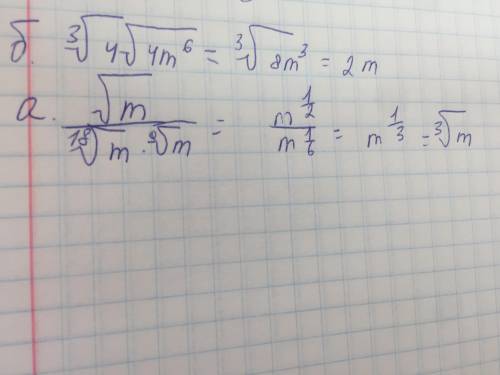 б. ∛(4√(4m⁶)) = ∛(8m³) = 2m
а. √m / (¹⁸√m · ⁹√m) = m^(1/2) / m^(1/6) = m^(1/3) = ∛m